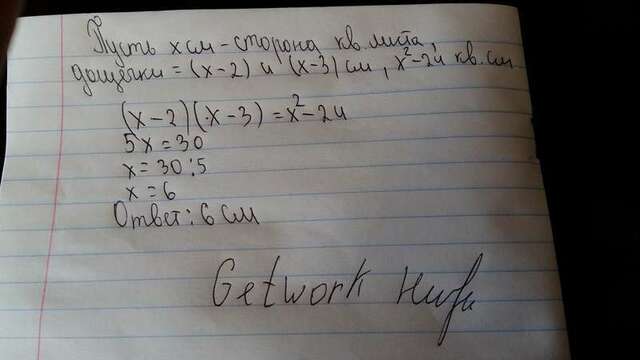 Пусть x см - сторона кв. листа,
дощечки = (x-2) и (x-3) см, x²-24 кв. см
(x-2)(x-3)=x²-24
5x=30
x=30:5
x=6
Ответ: 6 см
Getwork